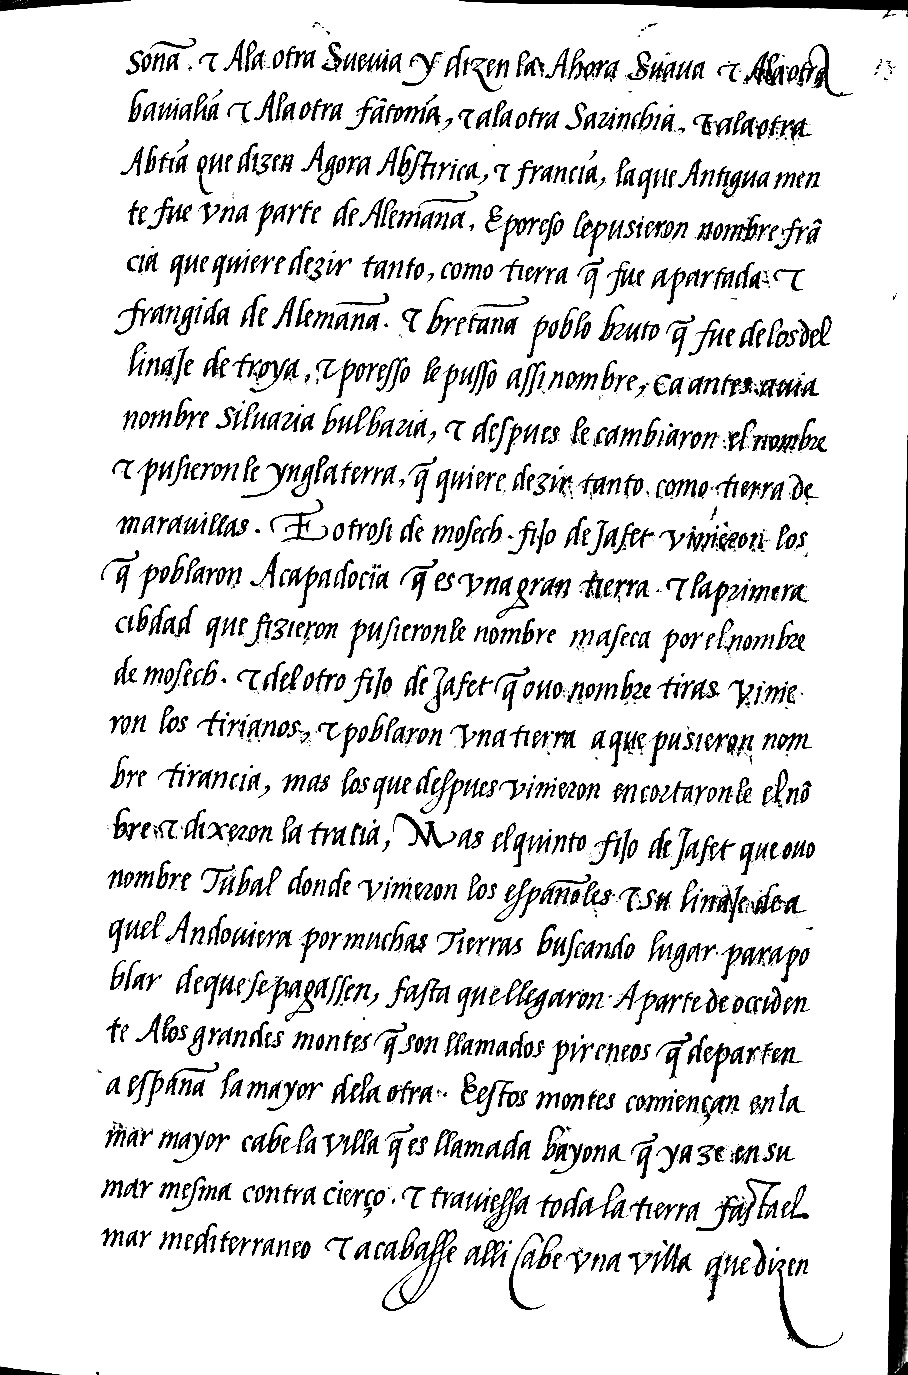 sonã. τ Ala otra Sueuia y dizen la Ahora Suaua τ Ala otra
bauialiá τ Ala otra fãtoniá, τ ala otra Sarinchia. τ ala otra
Abtiá que dizen Agora Abstirica, τ franciá, la que Antigua men
te fue vna parte de Alemãna. E poreso le pusieron nombre frã
cia que quiere dezir tanto, como tierra q̃ fue apartada τ
frangida de Alemãna. τ bretãna poblo bruto q̃ fue de los del
linaje de troya, τ poresso le pusso assi nombre, ca antes auia
nombre siluaria bulbaria, τ despues le cambiaron el nombre
τ pusieron le ynglaterra, q̃ quiere dezir tanto como tierra de
marauillas. E otrosi de mosech fijo de Jafet vinieron los
q̃ poblaron Acapadocia q̃ es vna gran tierra τ la primera
cibdad que fizieron pusieronle nombre maseca por el nombre
de mosech. τ del otro fijo de Jafet q̃ ouo nombre tiras vinie
ron los tirianos, τ poblaron vna tierra a que pusieron nom
bre tirancia, mas los que despues vinieron encortaronle el nõ
bre τ dixeron la tratia, Mas el quinto fijo de Jafet que ouo
nombre Tubal donde vinieron los españoles τ su linaje de a
quel Andouiera por muchas Tierras buscando lugar para po
blar de que se pagassen, fasta que llegaron A parte de occiden
te Alos grandes montes q̃ son llamados pireneos q̃ departen
a españa la mayor dela otra. E estos montes comiençan en la
mar mayor cabe la villa q̃ es llamada bayona q̃ yaze en su
mar mesma contra cierço. τ trauiessa toda la tierra fasta el
mar mediterraneo τ acabasse alli cabe vna villa que dizen